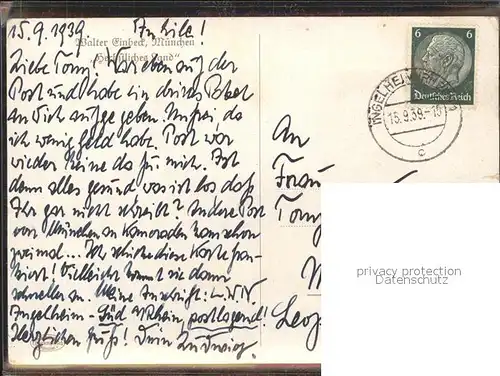 15.9.1939. In Eile!
Walter Einbeck, München
"Herbstliches Land"
Liebe Tony! War eben auf der
Post und habe ein drittes Paket
an Dich aufgegeben. Unfrei da
ich wenig Geld habe. Post war
wieder keine da für mich. Ist
denn alles gesund was ist los daß
Ihr gar nicht schreibt? Andere Post
von München an Kameraden kam schon
zweimal... Ich schicke diese Karte fran-
kiert! Vielleicht kommt sie dann
schneller an. Meine Anschrift: L.
Ingelheim-Süd a/Rhein postlagernd!
Herzlichen Gruß! Dein Ludwig.
6 6
Deutsches Reich
INGELHEIM
15.9.39.-10
c
An
Frau
Tony
M
Leop
privacy protection
Datenschutz